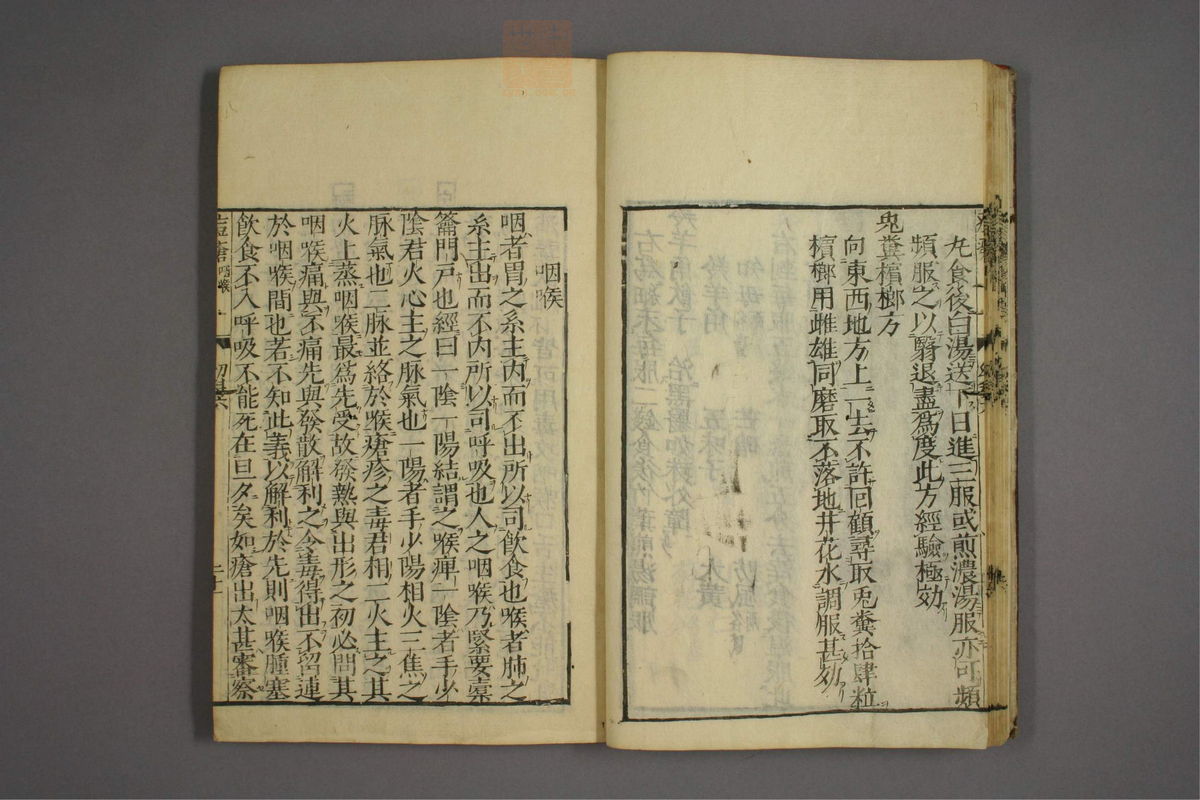 丸食後白湯送下日進三服或煎濃湯服亦可頻
頻服之以翳退盡爲度此方經驗極効
兎糞檳榔方
向東西地方上一去不許回顧尋取兎糞拾肆粒
檳榔用雌雄同磨取不落地井花水調服甚効
咽喉
咽者胃之系主内而不出所以司飲食也喉者肺之
系主出而不内所以司呼吸也人之咽喉乃緊要橐
籥門戸也經曰一陰一陽結謂之喉痺一陰者手少
陰君火心主之脉氣也一陽者手少陽相火三焦之
脉氣也二脉並絡於喉瘡疹之毒君相二火主之其
火上蒸咽喉最爲先受故發熱與出形之初必問其
咽喉痛與不痛先與發散解利之令毒得出不留連
於咽喉間也若不知此義以解利於先則咽喉腫塞
飲食不入呼吸不能死在旦夕矣如瘡出太甚審察
咽喉